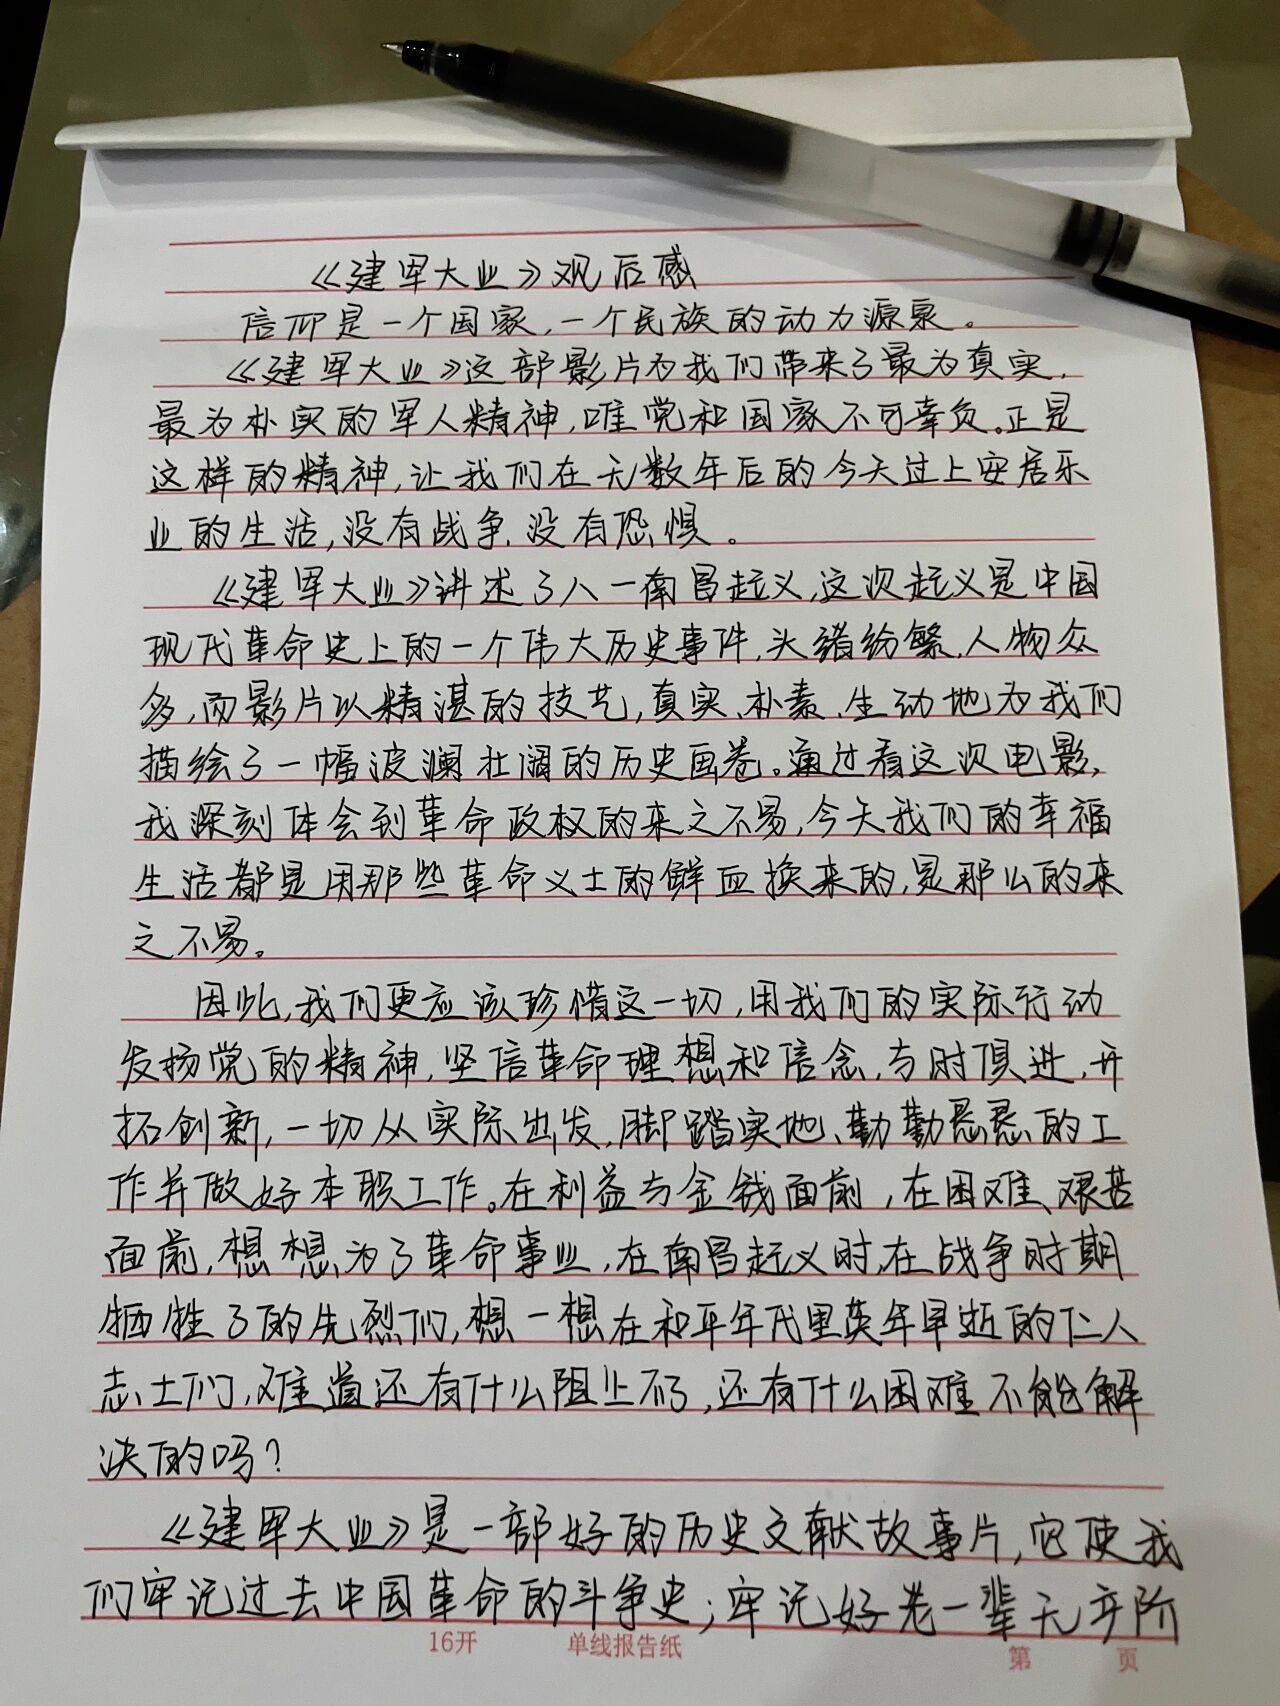 《建军大业》观后感
信仰是一个国家,一个民族的动力源泉。
《建军大业》这部影片为我们带来了最为真实,
最为朴实的军人精神,唯党和国家不可辜负。正是
这样的精神,让我们在无数年后的今天过上安居乐
业的生活,没有战争、没有恐惧。
《建军大业》讲述了八一南昌起义,这次起义是中国
现代革命史上的一个伟大历史事件,头绪纷繁、人物众
多,而影片以精湛的技艺,真实、朴素、生动地为我们
描绘了一幅波澜壮阔的历史画卷。通过看这次电影,
我深刻体会到革命政权的来之不易,今天我们的幸福
生活都是用那些革命义士的鲜血换来的,是那么的来
之不易。
因此,我们更应该珍惜这一切,用我们的实际行动
发扬党的精神,坚信革命理想和信念,与时俱进,开
拓创新,一切从实际出发,脚踏实地、勤勤恳恳的工
作并做好本职工作。在利益与金钱面前,在困难、艰苦
面前,想想为了革命事业,在南昌起义时,在战争时期
牺牲了的先烈们,想一想在和平年代里英年早逝的仁人
志士们,难道还有什么阻止不了,还有什么困难不能解
决的吗?
《建军大业》是一部好的历史文献故事片,它使我
们牢记过去中国革命的斗争史;牢记好老一辈无产阶
16开 单线报告纸 第 页